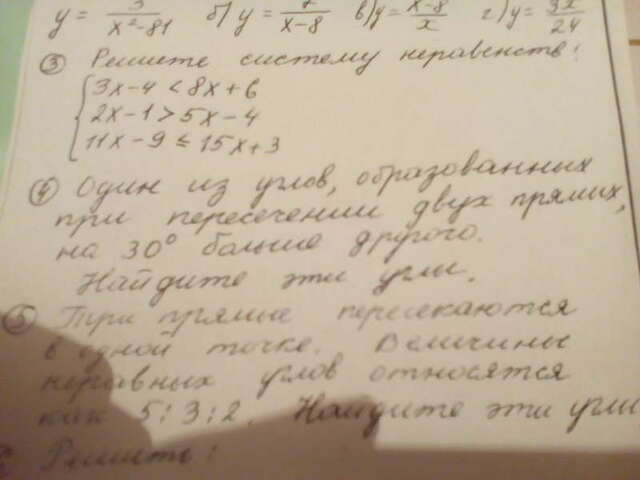 y = 3/(x²-81) б) y = 7/(x-8) в) y = (x-8)/x г) y = 3x/24
③ Решите систему неравенств:
3x-4 < 8x+6
2x-1 > 5x-4
11x-9 ≤ 15x+3
④ Один из углов, образованных
при пересечении двух прямых,
на 30° больше другого.
Найдите эти углы.
⑤ Три прямые пересекаются
в одной точке. Величины
неравных углов относятся
как 5:3:2. Найдите эти углы
Решить: